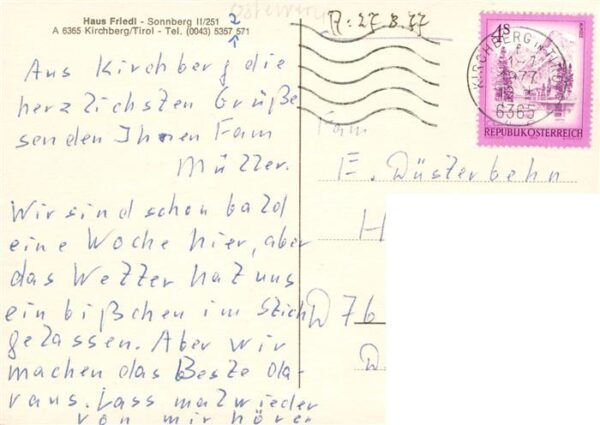 Haus Friedl - Sonnberg II/251
A 6365 Kirchberg/Tirol - Tel. (0043) 5357 571
2
Aus Kirchberg die
herzlichsten Grüße
senden Ihnen Fam
Müller.
Wir sind schon bald
eine Woche hier, aber
das Wetter hat uns
ein bißchen im Stich
gelassen. Aber wir
machen das Beste da-
raus. Lass mal wieder
von mir hören
A: 27.8.77
KIRCHBERG IN TIROL
1977
6365
4S
REPUBLIK ÖSTERREICH
Fam
E. Düsterbehn
H
D 76
D.